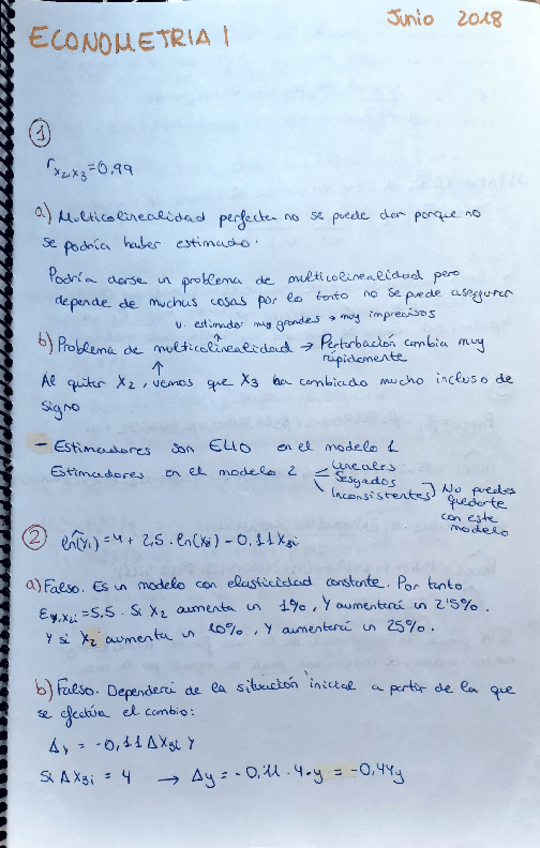 Junio 2018
ECONOMETRIA I
1
r x₂x₃ = 0,99
a.) Multicolinealidad perfecta no se puede dar porque no
se podría haber estimado.
Podría darse un problema de multicolinealidad pero
depende de muchas cosas por lo tanto no se puede asegurar
v. estimador muy grandes → muy imprecisos
b) Problema de multicolinealidad → Perturbación cambia muy
rápidamente
Al quitar X₂, vemos que X₃ ha cambiado mucho incluso de
signo
- Estimadores son ELIO en el modelo 1
Estimadores en el modelo 2
Lineales
Sesgados
Inconsistentes
No puedes
quedarte
con este
modelo
2
ln(Yᵢ) = 4 + 2,5 · ln(X₂ᵢ) - 0,11X₃ᵢ
a) Falso. Es un modelo con elasticidad constante. Por tanto
E y,x₂ᵢ = 5,5. Si X₂ aumenta un 1%, Y aumentará un 2'5%.
Y si X₂ aumenta un 10%, Y aumentará un 25%.
b) Falso. Dependerá de la situación inicial a partir de la que
se efectúa el cambio:
Δy = -0,11 ΔX₃ᵢ Y
Si ΔX₃ᵢ = 4 → Δy = -0,11 · 4 · y = -0,44y